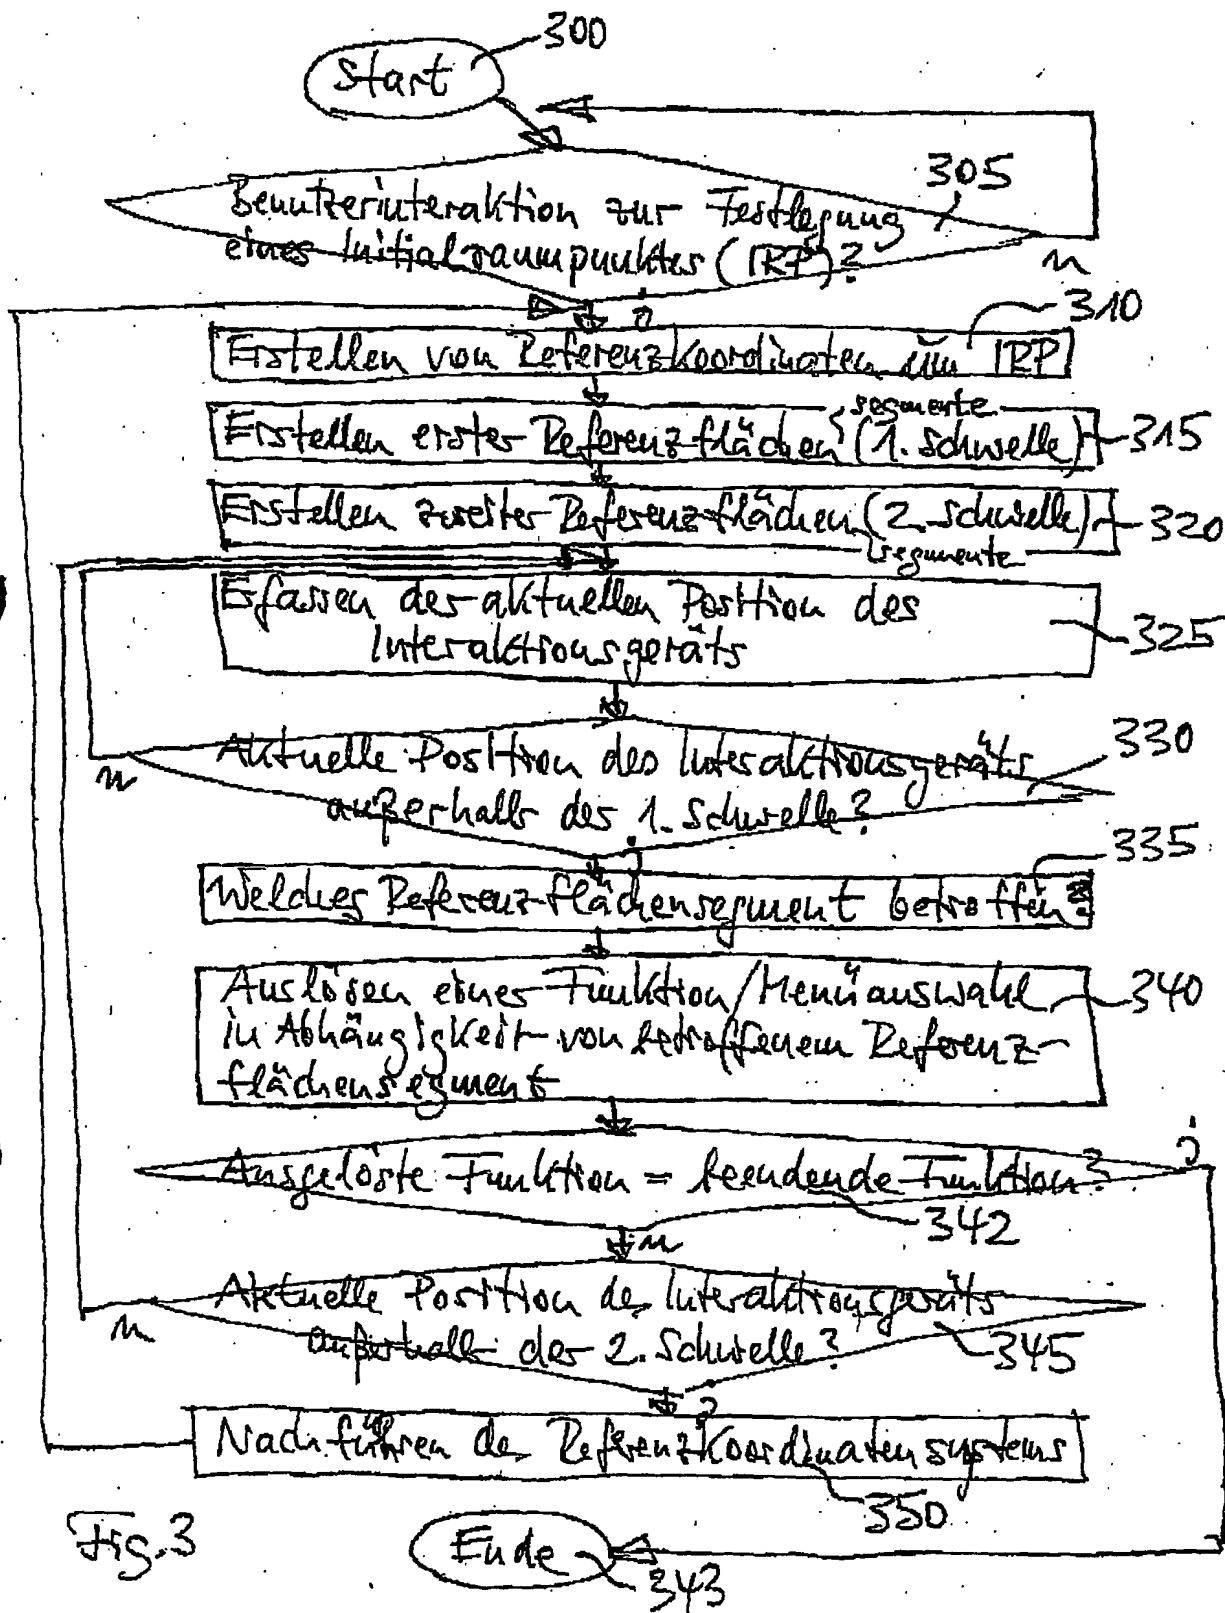 300
Start
305
Benutzerinteraktion zur Festlegung
eines Initialraumpunktes (IRP)?
n
j
310
Erstellen von Referenzkoordinaten um IRP
segmente
Erstellen erster Referenzflächen (1. Schwelle)
315
Erstellen zweiter Referenzflächen (2. Schwelle)
320
segmente
Erfassen der aktuellen Position des
Interaktionsgeräts
325
330
Aktuelle Position des Interaktionsgeräts
n
außerhalb der 1. Schwelle?
j
335
Welches Referenzflächensegment betroffen?
Auslösen einer Funktion/Menüauswahl
340
in Abhängigkeit von betroffenem Referenz-
flächensegment
j
Ausgelöste Funktion = beendende Funktion?
342
n
Aktuelle Position des Interaktionsgeräts
n
außerhalb der 2. Schwelle?
345
j
Nachführen des Referenzkoordinatensystems
350
Fig. 3
Ende
343